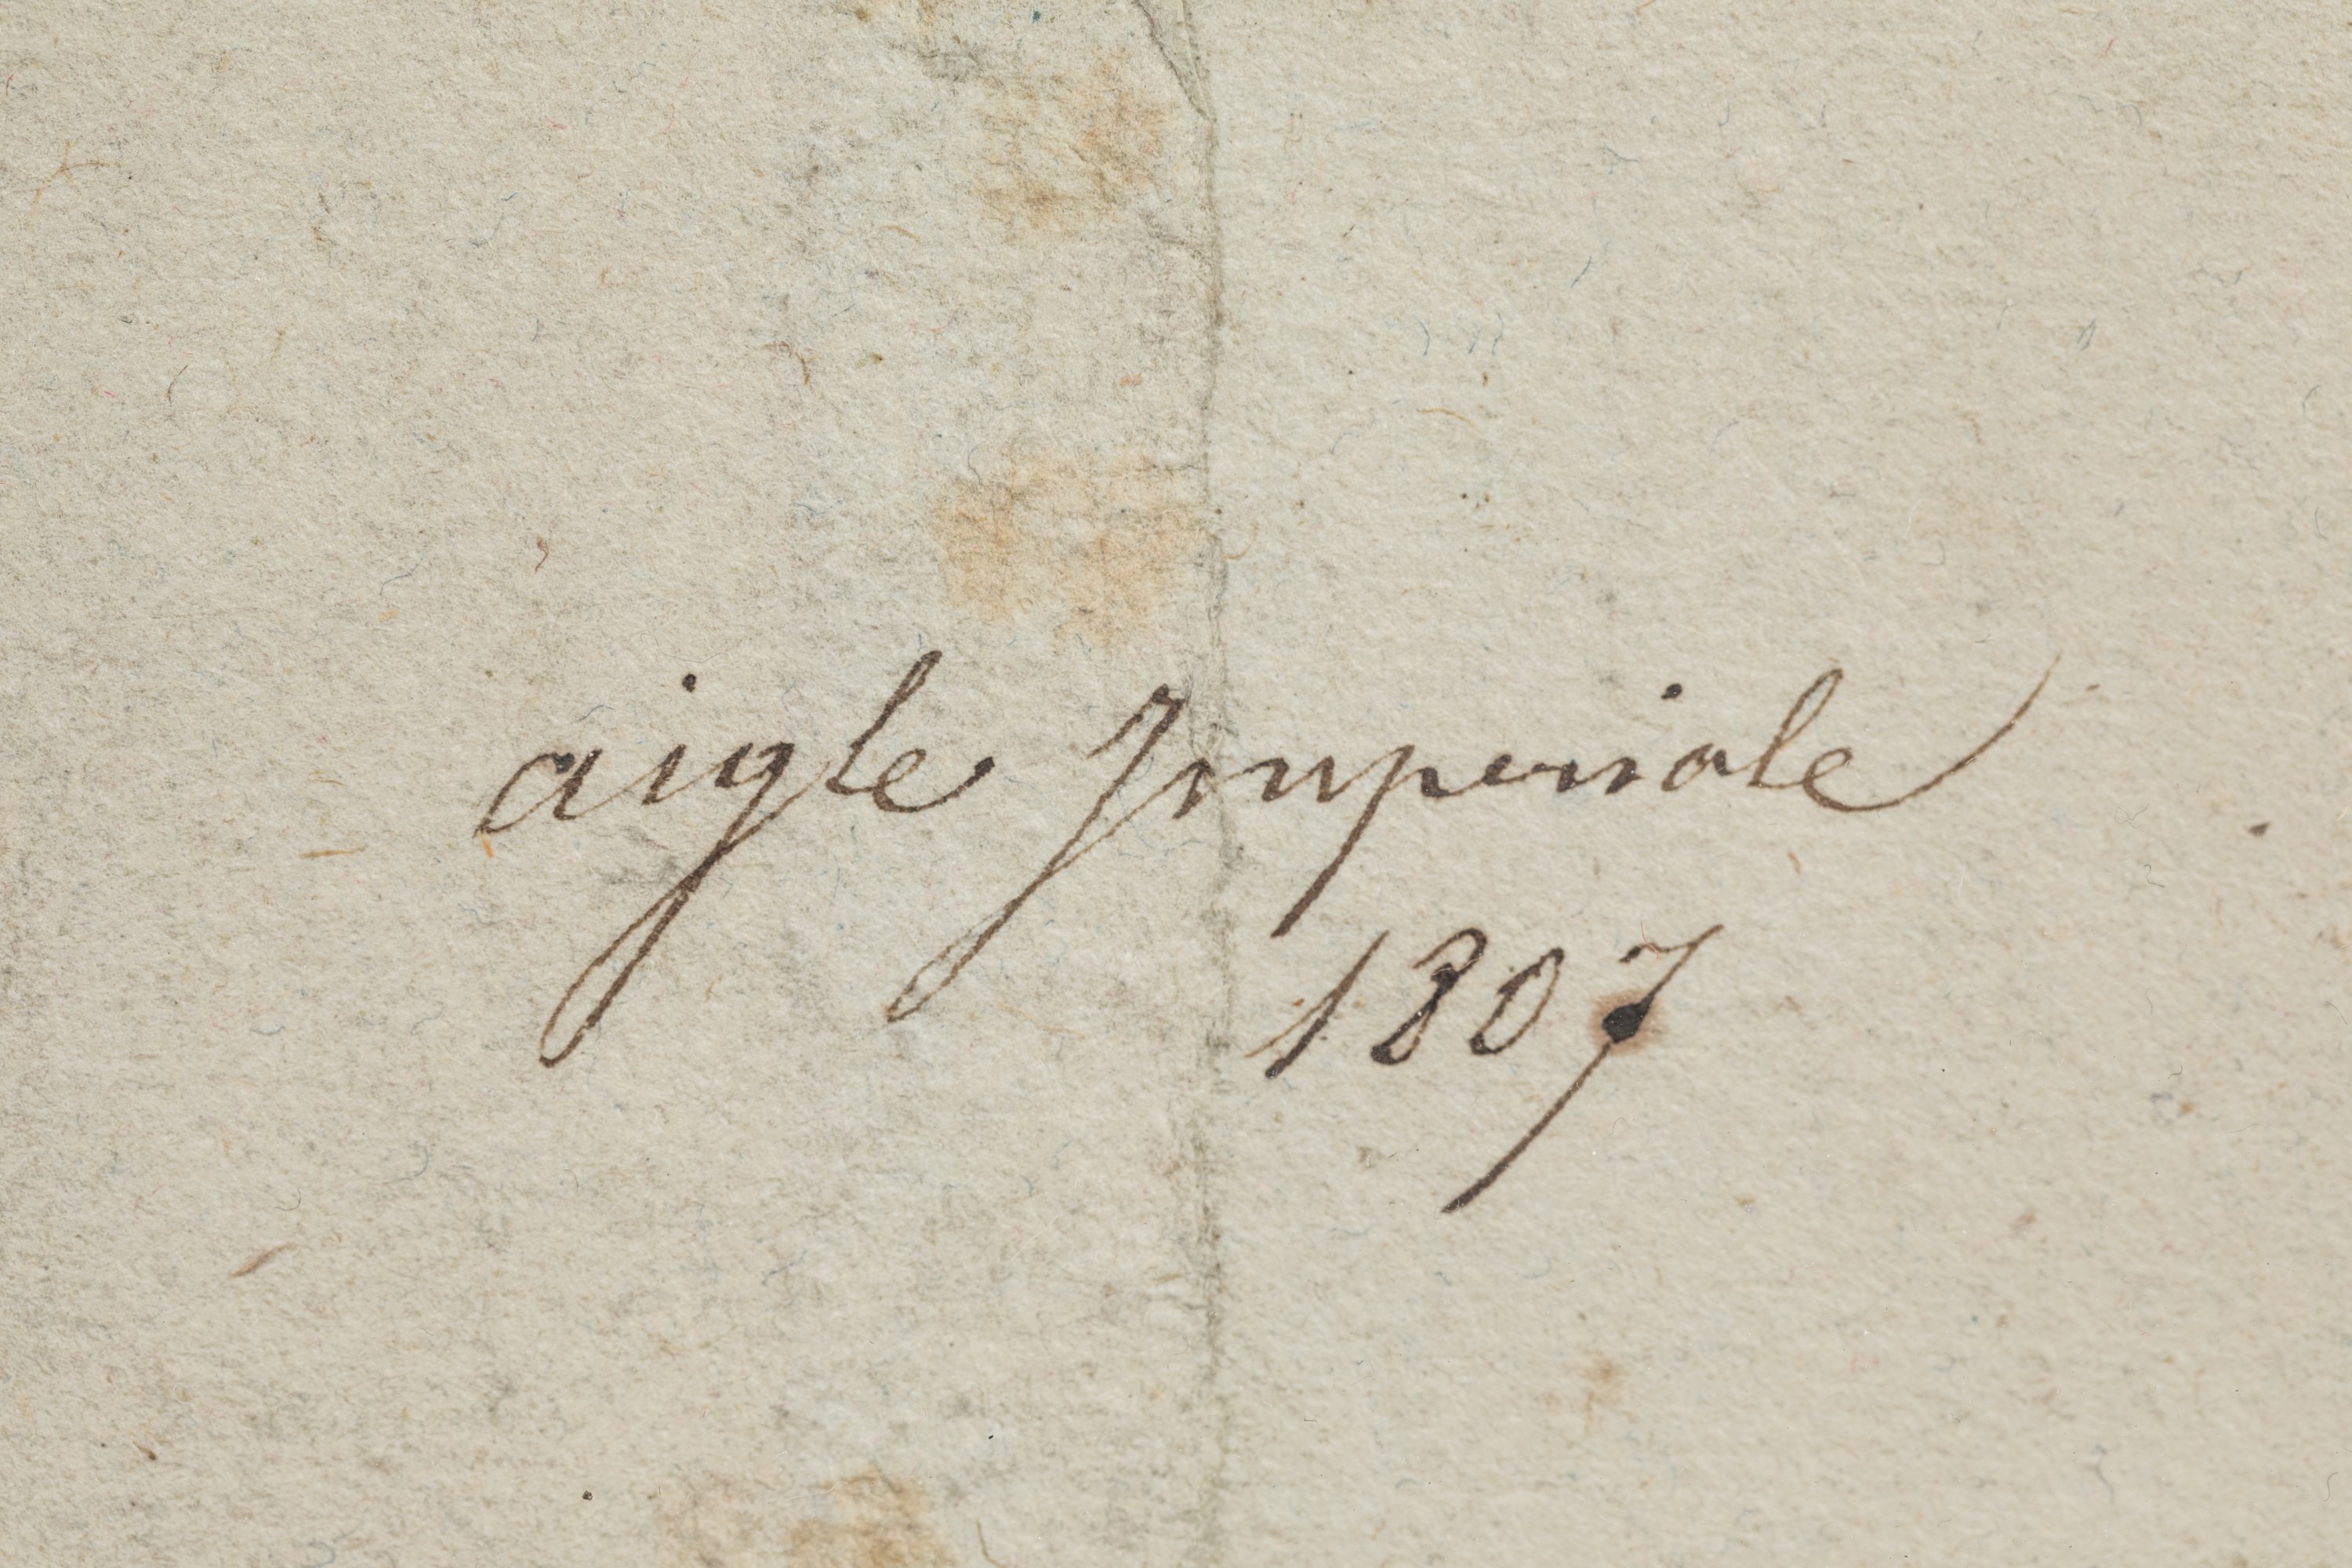 aigle Imperiale
1807